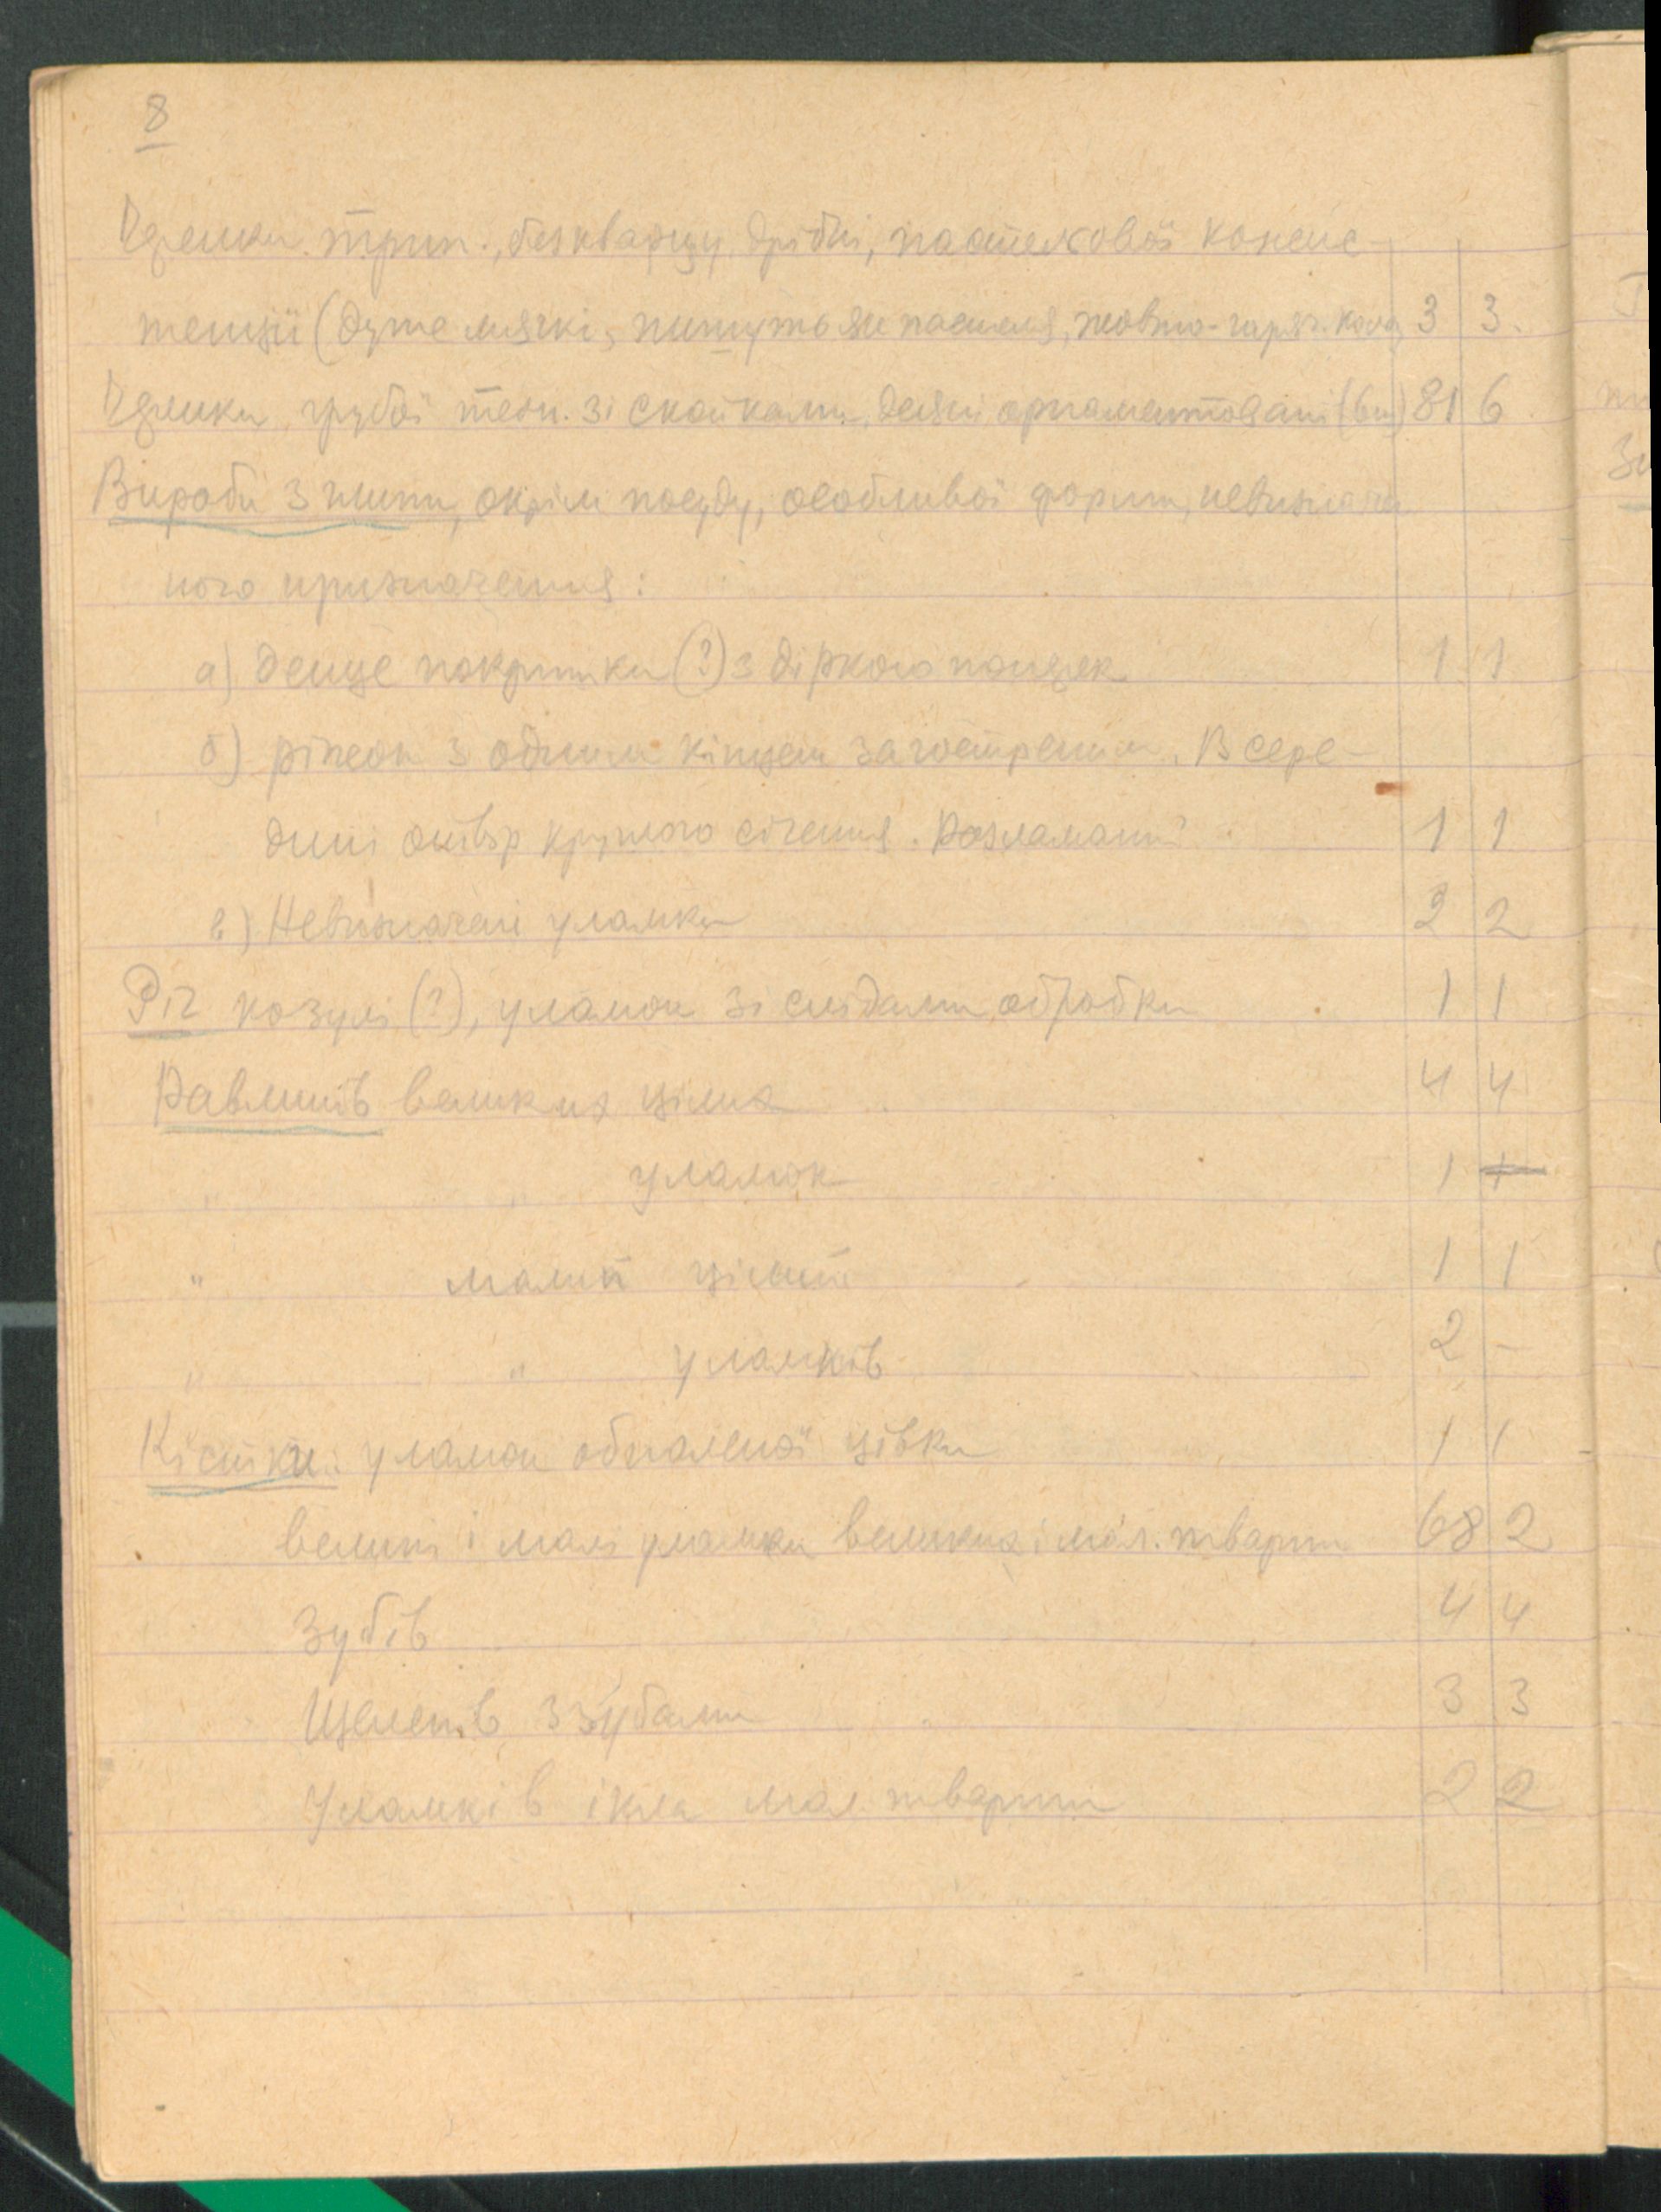 8
Черепки трип., без кварцу, дрібні, пастелсової консис-
тенції (дуже мягкі, пишуть як пастеля, жовто-гаряч. кол.) 3 3.
Черепки грубої техн. зі скойками, деякі орнаментовані (6 ш) 81 6.
Вироби з глини, окрім посуду, особливої форми, невизначе-
ного призначення:
а) денце покришки (?) з діркою поперек 1 1
б) ріжок з одним кінцем загостреним. В сере-
дині отвір круглого січення. Розламаний 1 1
в) Невизначені уламки 2 2
Ріг козулі (?), уламок зі слідами обробки 1 1
Равликів великих цілих 4 4
" " уламок 1 1
" малий цілий 1 1
" " уламків 2 -
Кістки: уламок обпаленої цівки 1 1
великі і малі уламки великих і мал. тварин 68 2
Зубів 4 4
Щелепів з зубами 3 3
Уламків ікла мал. тварин 2 2